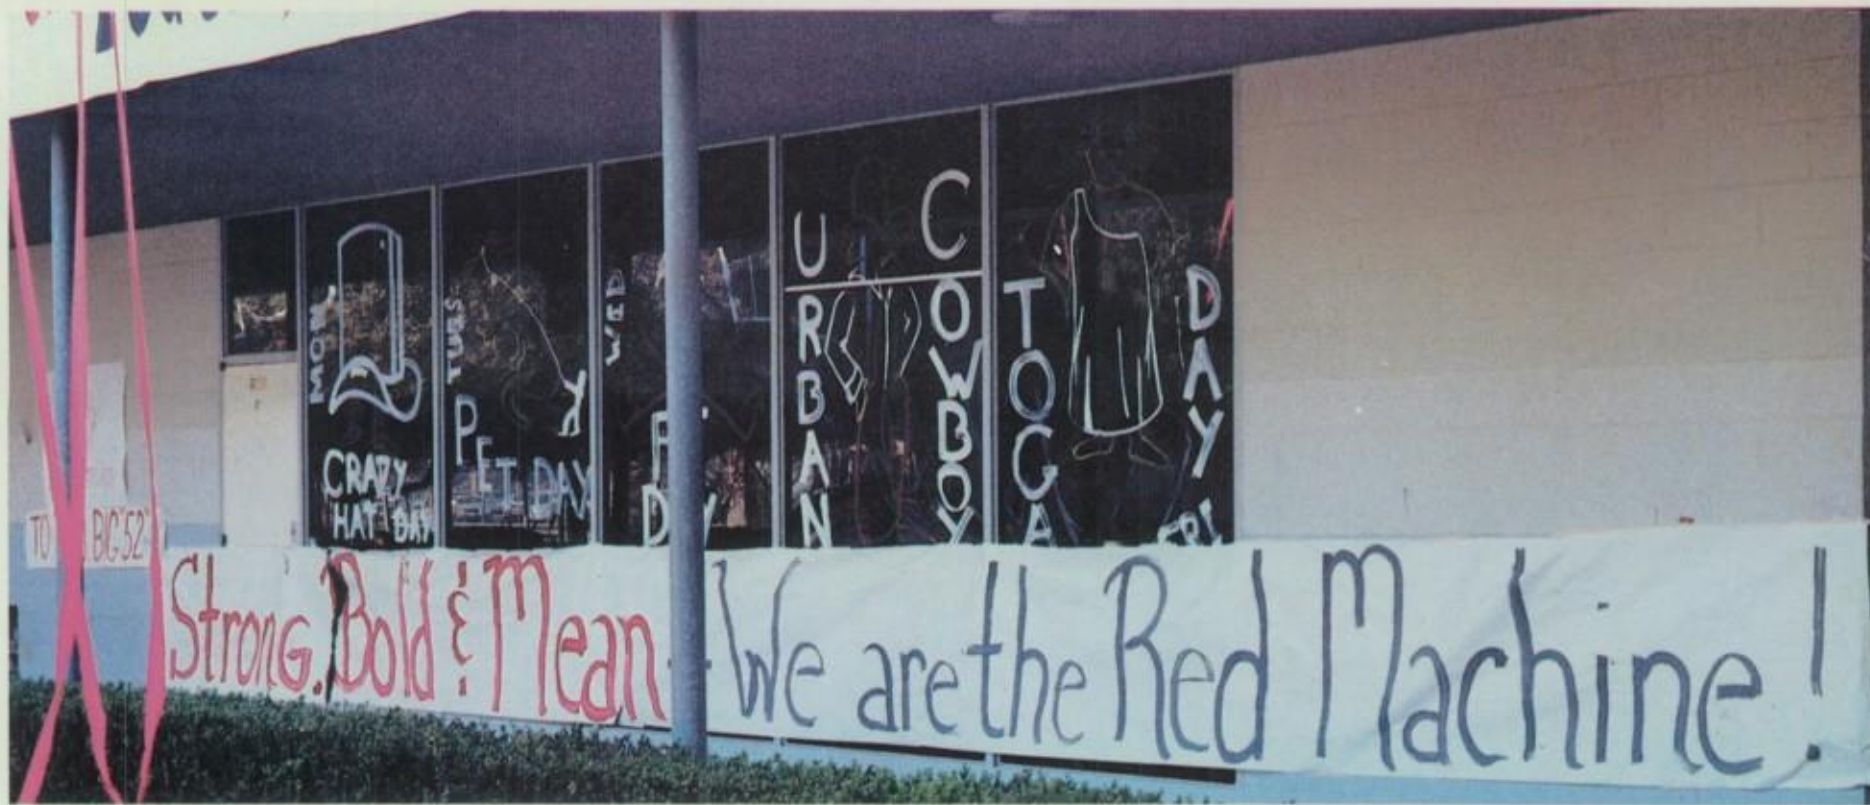 MON
CRAZY
HAT DAY
TUES
PET DAY
WED
URBAN
COWBOY
TOGA
DAY
FRI
TO BIG "52"
Strong, Bold & Mean - We are the Red Machine!